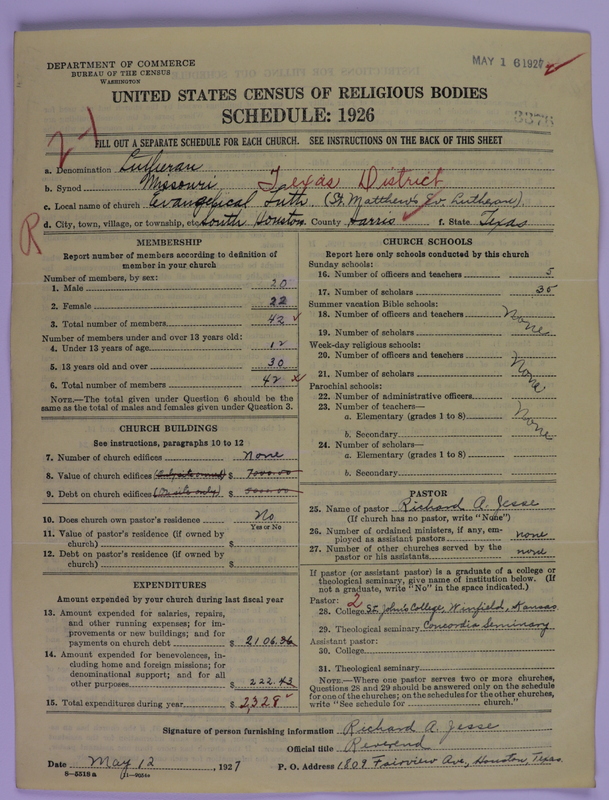 DEPARTMENT OF COMMERCE
BUREAU OF THE CENSUS
WASHINGTON
MAY 16 1927
UNITED STATES CENSUS OF RELIGIOUS BODIES
SCHEDULE: 1926
2-1
FILL OUT A SEPARATE SCHEDULE FOR EACH CHURCH. SEE INSTRUCTIONS ON THE BACK OF THIS SHEET
a. Denomination Lutheran
b. Synod Missouri Texas District
c. Local name of church Evangelical Luth. (St. Matthew's Ev. Lutheran).
R
d. City, town, village, or township, etc. South Houston. County Harris f. State Texas
MEMBERSHIP
Report number of members according to definition of
member in your church
Number of members, by sex:
1. Male 20
2. Female 22
3. Total number of members. 42
Number of members under and over 13 years old:
4. Under 13 years of age 12
5. 13 years old and over 30
6. Total number of members 42
NOTE.—The total given under Question 6 should be the
same as the total of males and females given under Question 3.
CHURCH BUILDINGS
See instructions, paragraphs 10 to 12
7. Number of church edifices none
8. Value of church edifices $ 7000.00
9. Debt on church edifices $
10. Does church own pastor's residence No
Yes or No
11. Value of pastor's residence (if owned by
church) $
12. Debt on pastor's residence (if owned by
church) $
EXPENDITURES
Amount expended by your church during last fiscal year
13. Amount expended for salaries, repairs,
and other running expenses; for im-
provements or new buildings; and for
payments on church debt $ 2106.36
14. Amount expended for benevolences, in-
cluding home and foreign missions; for
denominational support; and for all
other purposes $ 222.43
15. Total expenditures during year $ 2,328
CHURCH SCHOOLS
Report here only schools conducted by this church
Sunday schools:
16. Number of officers and teachers 5
17. Number of scholars 35
Summer vacation Bible schools:
18. Number of officers and teachers None
19. Number of scholars
Week-day religious schools:
20. Number of officers and teachers None
21. Number of scholars
Parochial schools:
22. Number of administrative officers
23. Number of teachers— None
a. Elementary (grades 1 to 8)
b. Secondary
24. Number of scholars—
a. Elementary (grades 1 to 8)
b. Secondary
PASTOR
25. Name of pastor Richard A. Jesse
(If church has no pastor, write "None")
26. Number of ordained ministers, if any, em-
ployed as assistant pastors none
27. Number of other churches served by the
pastor or his assistants none
If pastor (or assistant pastor) is a graduate of a college or
theological seminary, give name of institution below. (If
not a graduate, write "No" in the space indicated.)
Pastor: 2
28. College St. John's College, Winfield, Kansas
29. Theological seminary Concordia Seminary
Assistant pastor:
30. College
31. Theological seminary
NOTE.—Where one pastor serves two or more churches,
Questions 28 and 29 should be answered only on the schedule
for one of the churches; on the schedules for the other churches,
write "See schedule for church."
Signature of person furnishing information Richard A. Jesse
Official title Reverend
Date May 12, 1927 P. O. Address 1809 Fairview Ave., Houston, Texas.
8—5518 a 11—9054